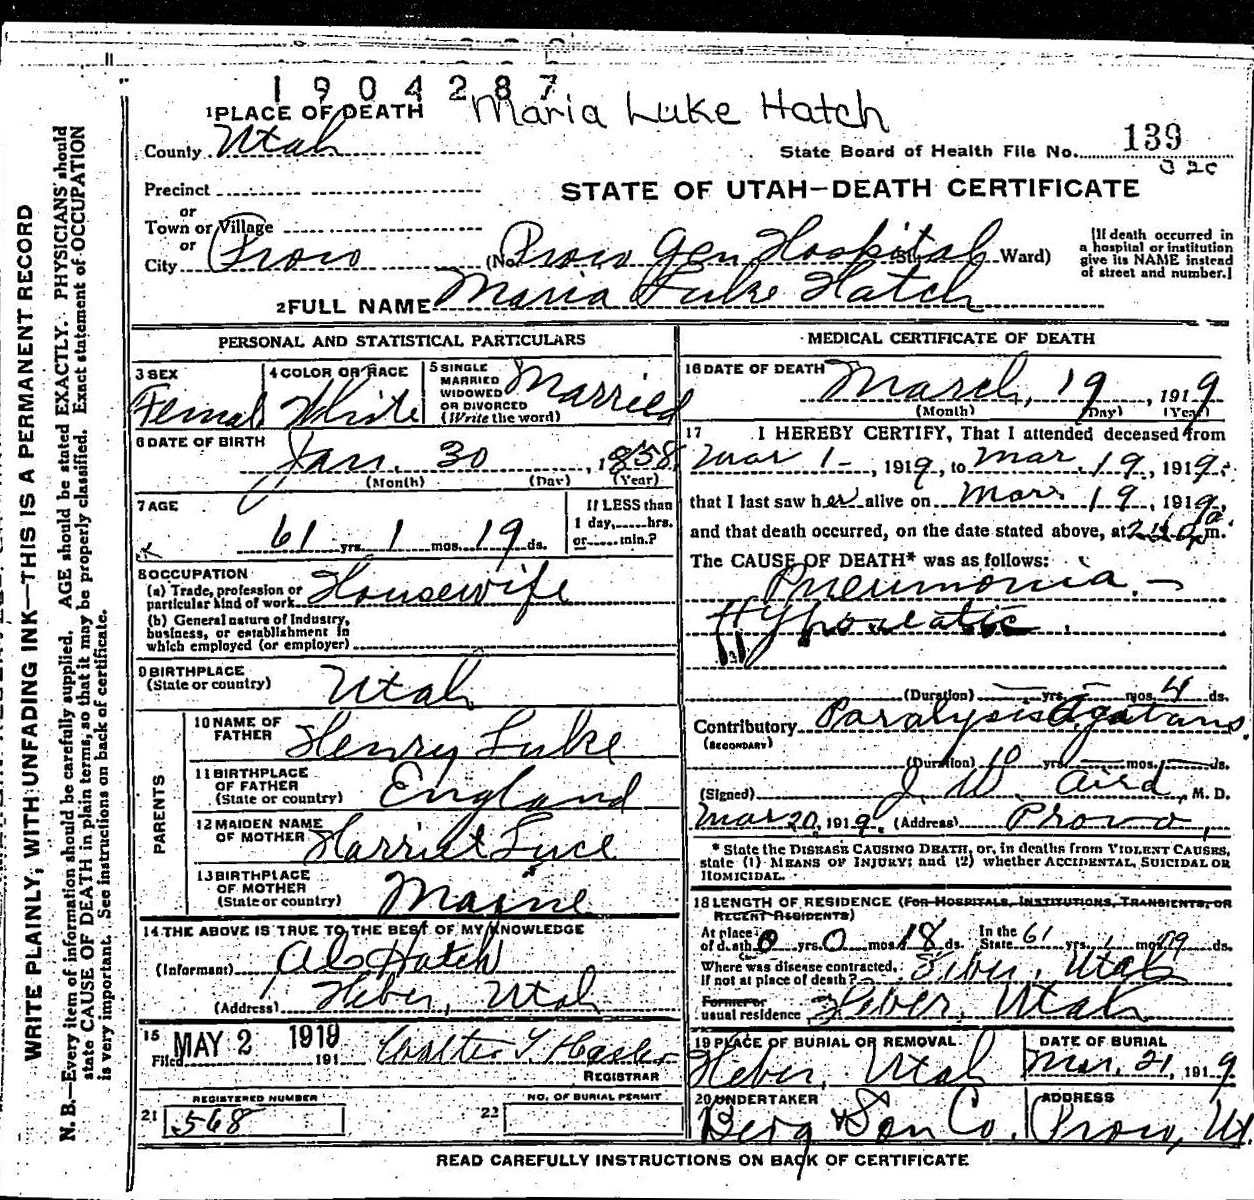 1904287
Maria Luke Hatch
1 PLACE OF DEATH
County Utah
State Board of Health File No. 139
Precinct
or
Town or Village
or
City Provo
STATE OF UTAH—DEATH CERTIFICATE
(No. Provo Gen Hospital St., Ward)
[If death occurred in
a hospital or institution
give its NAME instead
of street and number.]
2 FULL NAME Maria Luke Hatch
PERSONAL AND STATISTICAL PARTICULARS
3 SEX
Femal
4 COLOR OR RACE
White
5 SINGLE
MARRIED
WIDOWED
OR DIVORCED
(Write the word)
Married
6 DATE OF BIRTH
Jan. 30, 1858
(Month) (Day) (Year)
7 AGE
61 yrs. 1 mos. 19 ds.
If LESS than
1 day, hrs.
or min.?
8 OCCUPATION
(a) Trade, profession or
particular kind of work Housewife
(b) General nature of Industry,
business, or establishment in
which employed (or employer)
9 BIRTHPLACE
(State or country) Utah
PARENTS
10 NAME OF
FATHER Henry Luke
11 BIRTHPLACE
OF FATHER
(State or country) England
12 MAIDEN NAME
OF MOTHER Harriet Luce
13 BIRTHPLACE
OF MOTHER
(State or country) Maine
14 THE ABOVE IS TRUE TO THE BEST OF MY KNOWLEDGE
(Informant) Hatch
(Address) Heber, Utah
15
Filed MAY 2 1919 191
REGISTRAR
REGISTERED NUMBER
21 568
NO. OF BURIAL PERMIT
22
MEDICAL CERTIFICATE OF DEATH
16 DATE OF DEATH
March, 19, 1919
(Month) (Day) (Year)
17 I HEREBY CERTIFY, That I attended deceased from
Mar 1-, 1919, to Mar. 19, 1919.
that I last saw her alive on Mar. 19, 1919,
and that death occurred, on the date stated above, at m.
The CAUSE OF DEATH* was as follows:
Pneumonia -
Hypostatic
(Duration) yrs. mos. 4 ds.
Contributory Paralysis Agatans.
(SECONDARY)
(Duration) yrs. mos. ds.
(Signed) J. W. Aird, M. D.
Mar 20, 1919. (Address) Provo,
* State the DISEASE CAUSING DEATH, or, in deaths from VIOLENT CAUSES,
state (1) MEANS OF INJURY; and (2) whether ACCIDENTAL, SUICIDAL OR
HOMICIDAL.
18 LENGTH OF RESIDENCE (FOR HOSPITALS, INSTITUTIONS, TRANSIENTS, OR
RECENT RESIDENTS)
At place
of death 0 yrs. 0 mos. 18 ds. In the
State 61 yrs. 1 mos. 19 ds.
Where was disease contracted,
if not at place of death? Heber, Utah
Former or
usual residence Heber, Utah
19 PLACE OF BURIAL OR REMOVAL
Heber, Utah
DATE OF BURIAL
Mar. 21, 1919
20 UNDERTAKER
Berg & Son Co.
ADDRESS
Provo, Ut.
READ CAREFULLY INSTRUCTIONS ON BACK OF CERTIFICATE
WRITE PLAINLY, WITH UNFADING INK—THIS IS A PERMANENT RECORD
N. B.—Every item of information should be carefully supplied. AGE should be stated EXACTLY. PHYSICIANS should
state CAUSE OF DEATH in plain terms, so that it may be properly classified. Exact statement of OCCUPATION
is very important. See instructions on back of certificate.